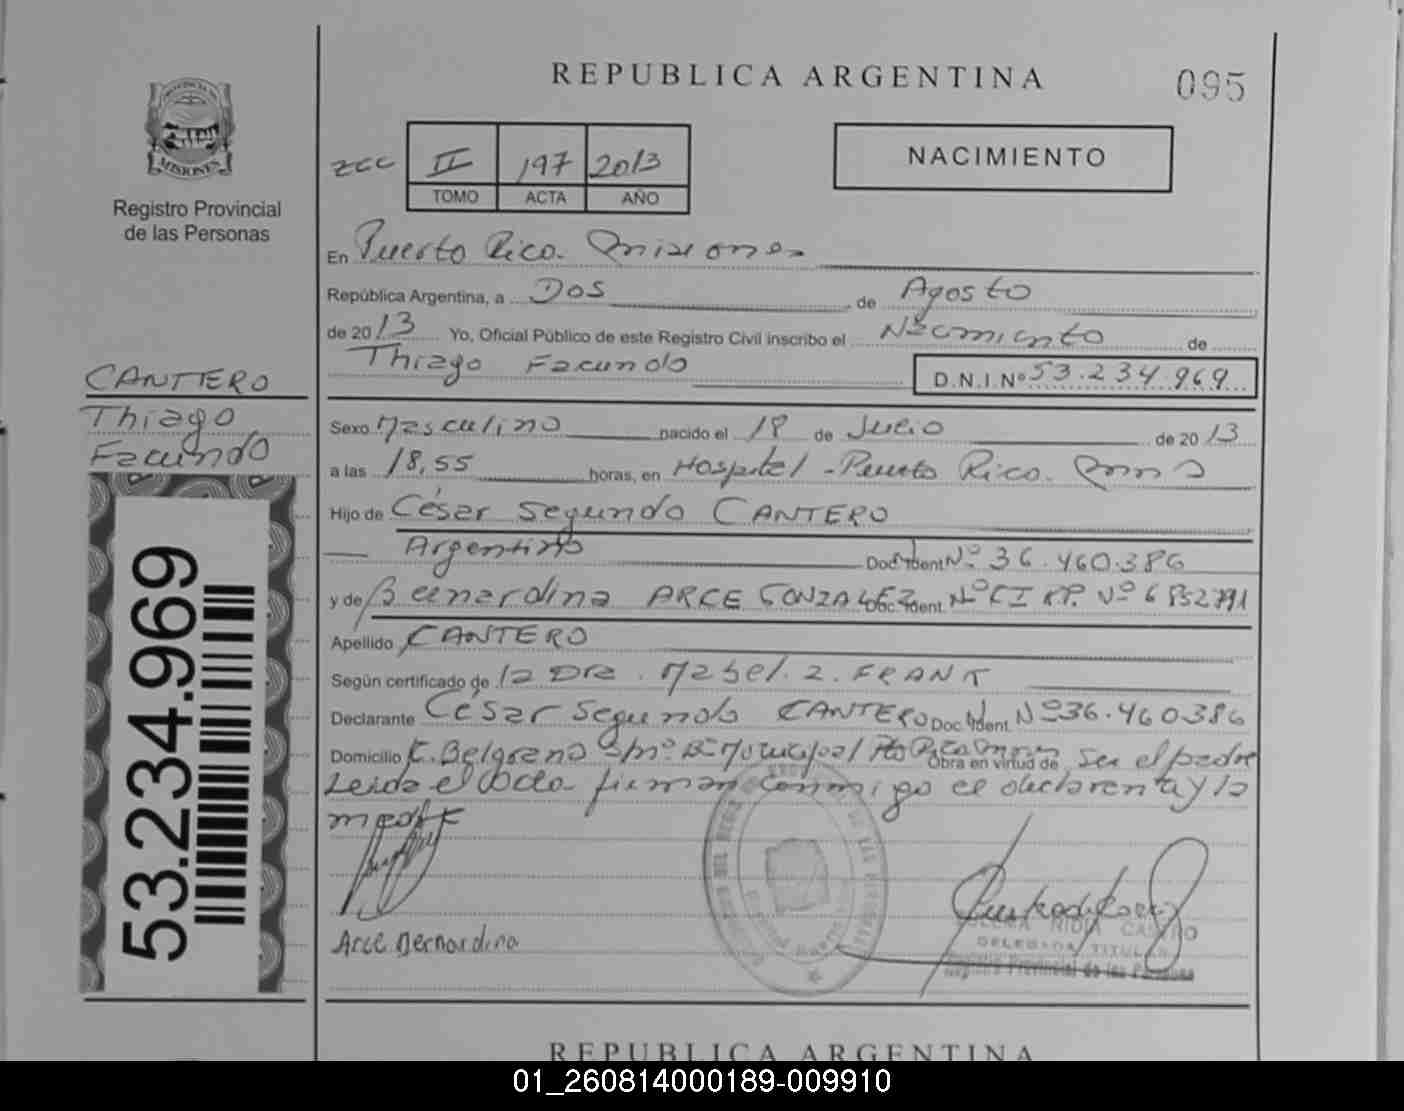 REPUBLICA ARGENTINA
095
PROVINCIA DE MISIONES
Registro Provincial
de las Personas
ZCC II 197 2013
TOMO ACTA AÑO
NACIMIENTO
En Puerto Rico. Misiones
República Argentina, a Dos de Agosto
de 2013 Yo, Oficial Público de este Registro Civil inscribo el Nacimiento de
Thiago Facundo D.N.I.Nº 53.234.969
CANTERO
Thiago
Facundo
53.234.969
Sexo Masculino nacido el 18 de Julio de 2013
a las 18,55 horas, en Hospital - Puerto Rico.
Hijo de César Segundo CANTERO
Argentino Doc. Ident. Nº 36.460.386
y de Bernardina ARCE GONZALEZ Doc. Ident. Nº CI RP. Nº
Apellido CANTERO
Según certificado de la Dra. Mabel. Z. FRANK
Declarante César Segundo CANTERO Doc. Ident. Nº 36.460386
Domicilio C. Belgrano Obra en virtud de Ser el padre
Leida el Acta firman conmigo el declarente y la
madre
Arce Bernardina
NIDIA CASTRO
DELEGADA TITULAR
Registro Provincial de las Personas
REPUBLICA ARGENTINA
01_260814000189-009910